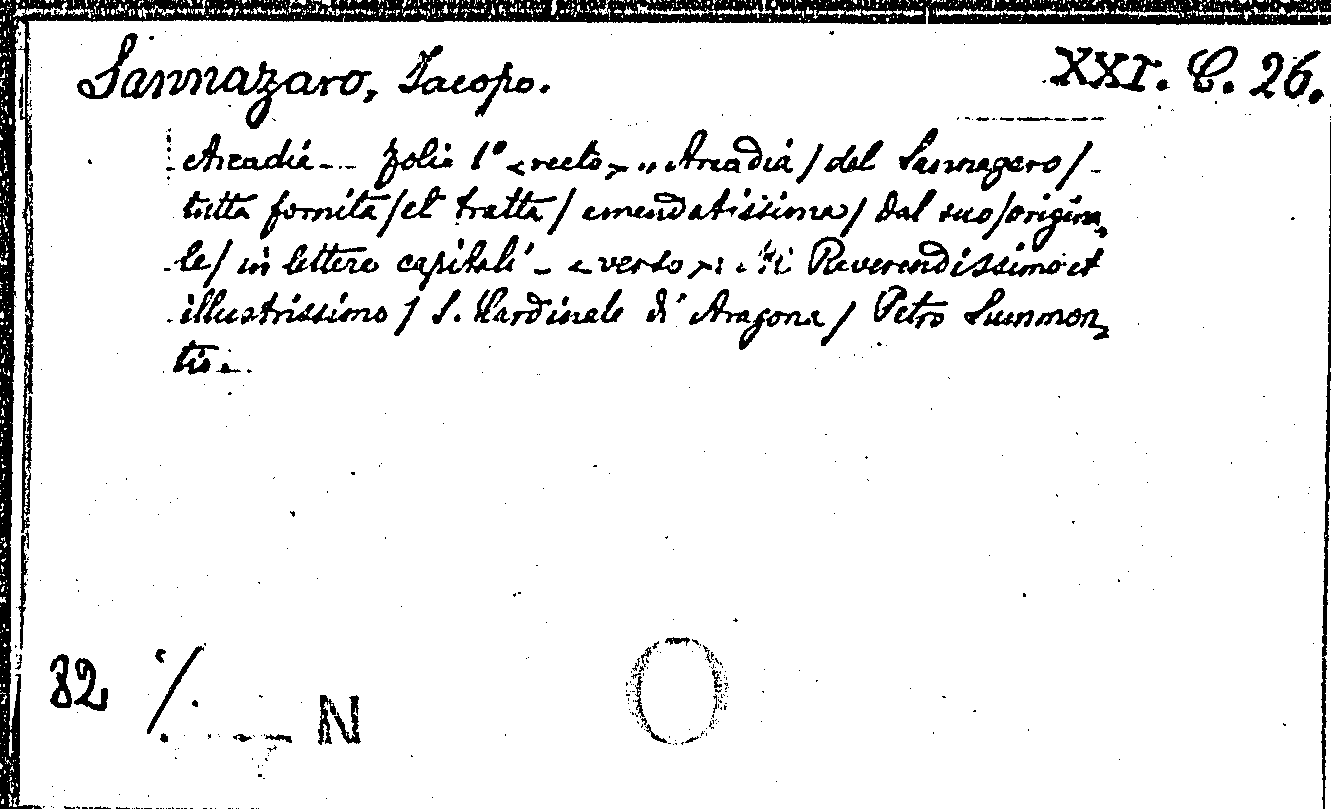 Sannazaro, Jacopo.
XXI. C. 26.
Arcadia... folio 1° <recto> „Arcadia / del Sannazaro /
tutta fornita / et tratta / emendatissima / dal suo / origina,
le / in lettere capitali - <verso>: Reverendissimo et
illustrissimo / S. Cardinale di Aragona / Petro Summon,
tio.
82
N